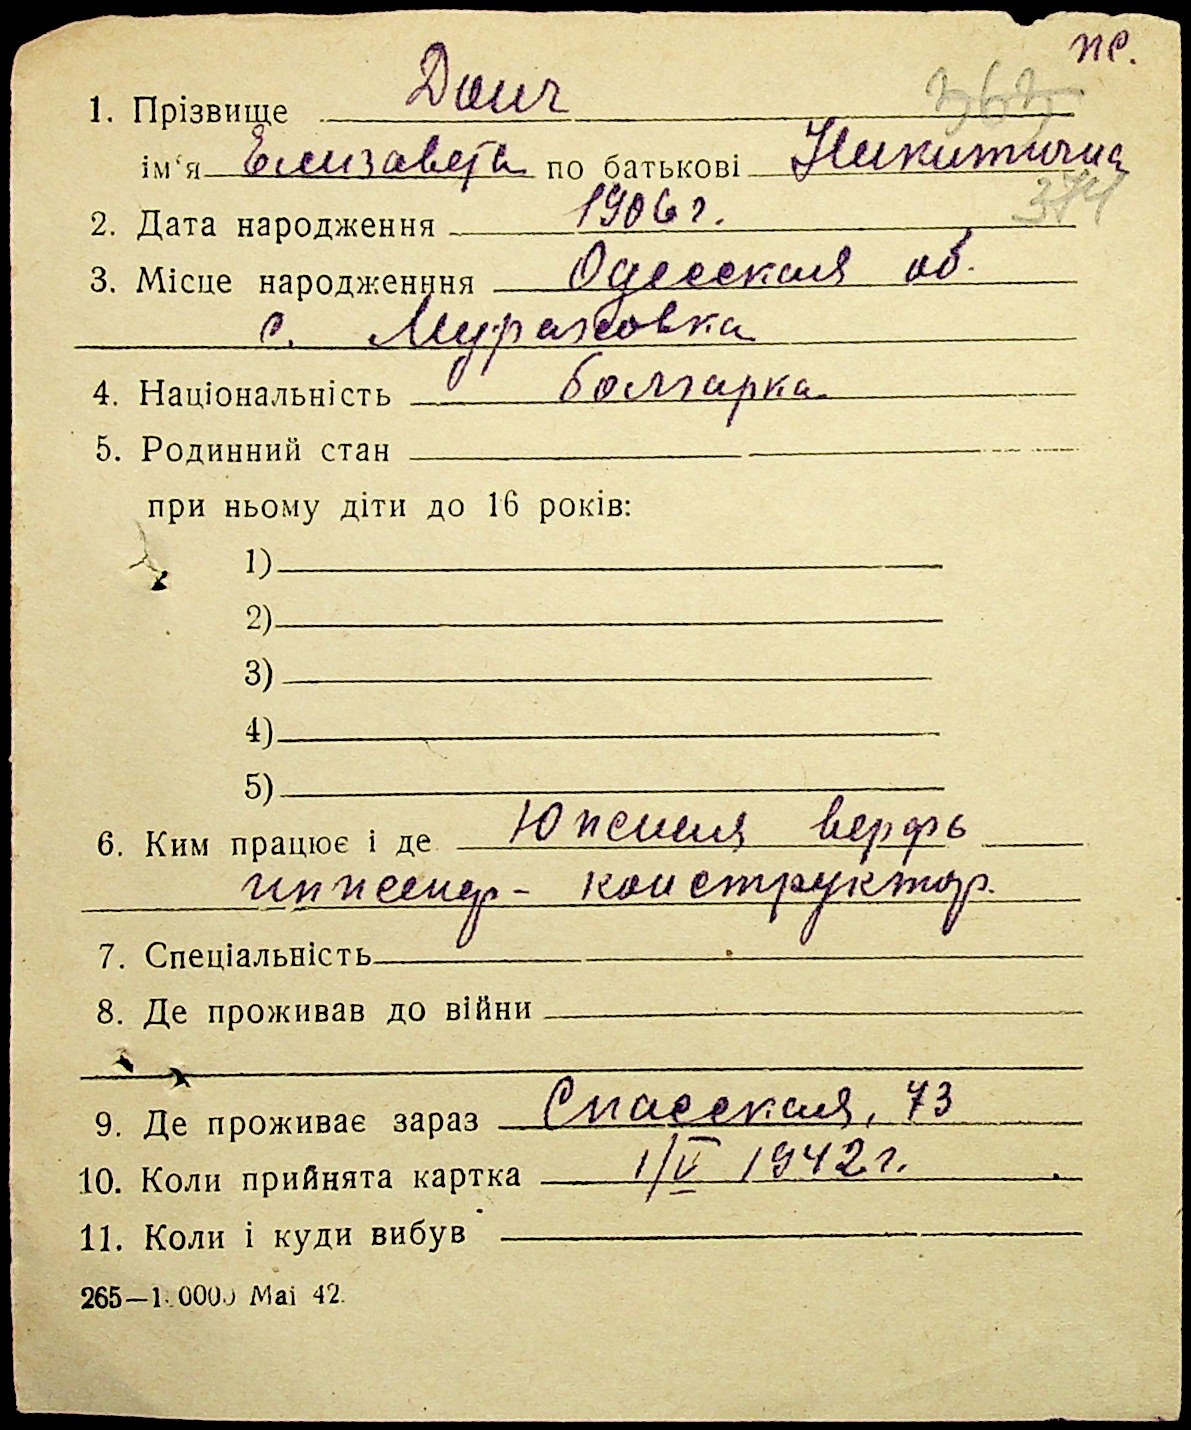 пе.
1. Прізвище Доич
363
ім'я Елизавета по батькові Никитична
374
2. Дата народження 1906 г.
3. Місце народженння Одесская об.
с. Муражовка
4. Національність болгарка
5. Родинний стан
при ньому діти до 16 років:
1)
2)
3)
4)
5)
6. Ким працює і де Южная верфь
инженер - конструктор.
7. Спеціальність
8. Де проживав до війни
9. Де проживає зараз Спасская, 73
10. Коли прийнята картка 1/V 1942 г.
11. Коли і куди вибув
265—1.0000 Mai 42.